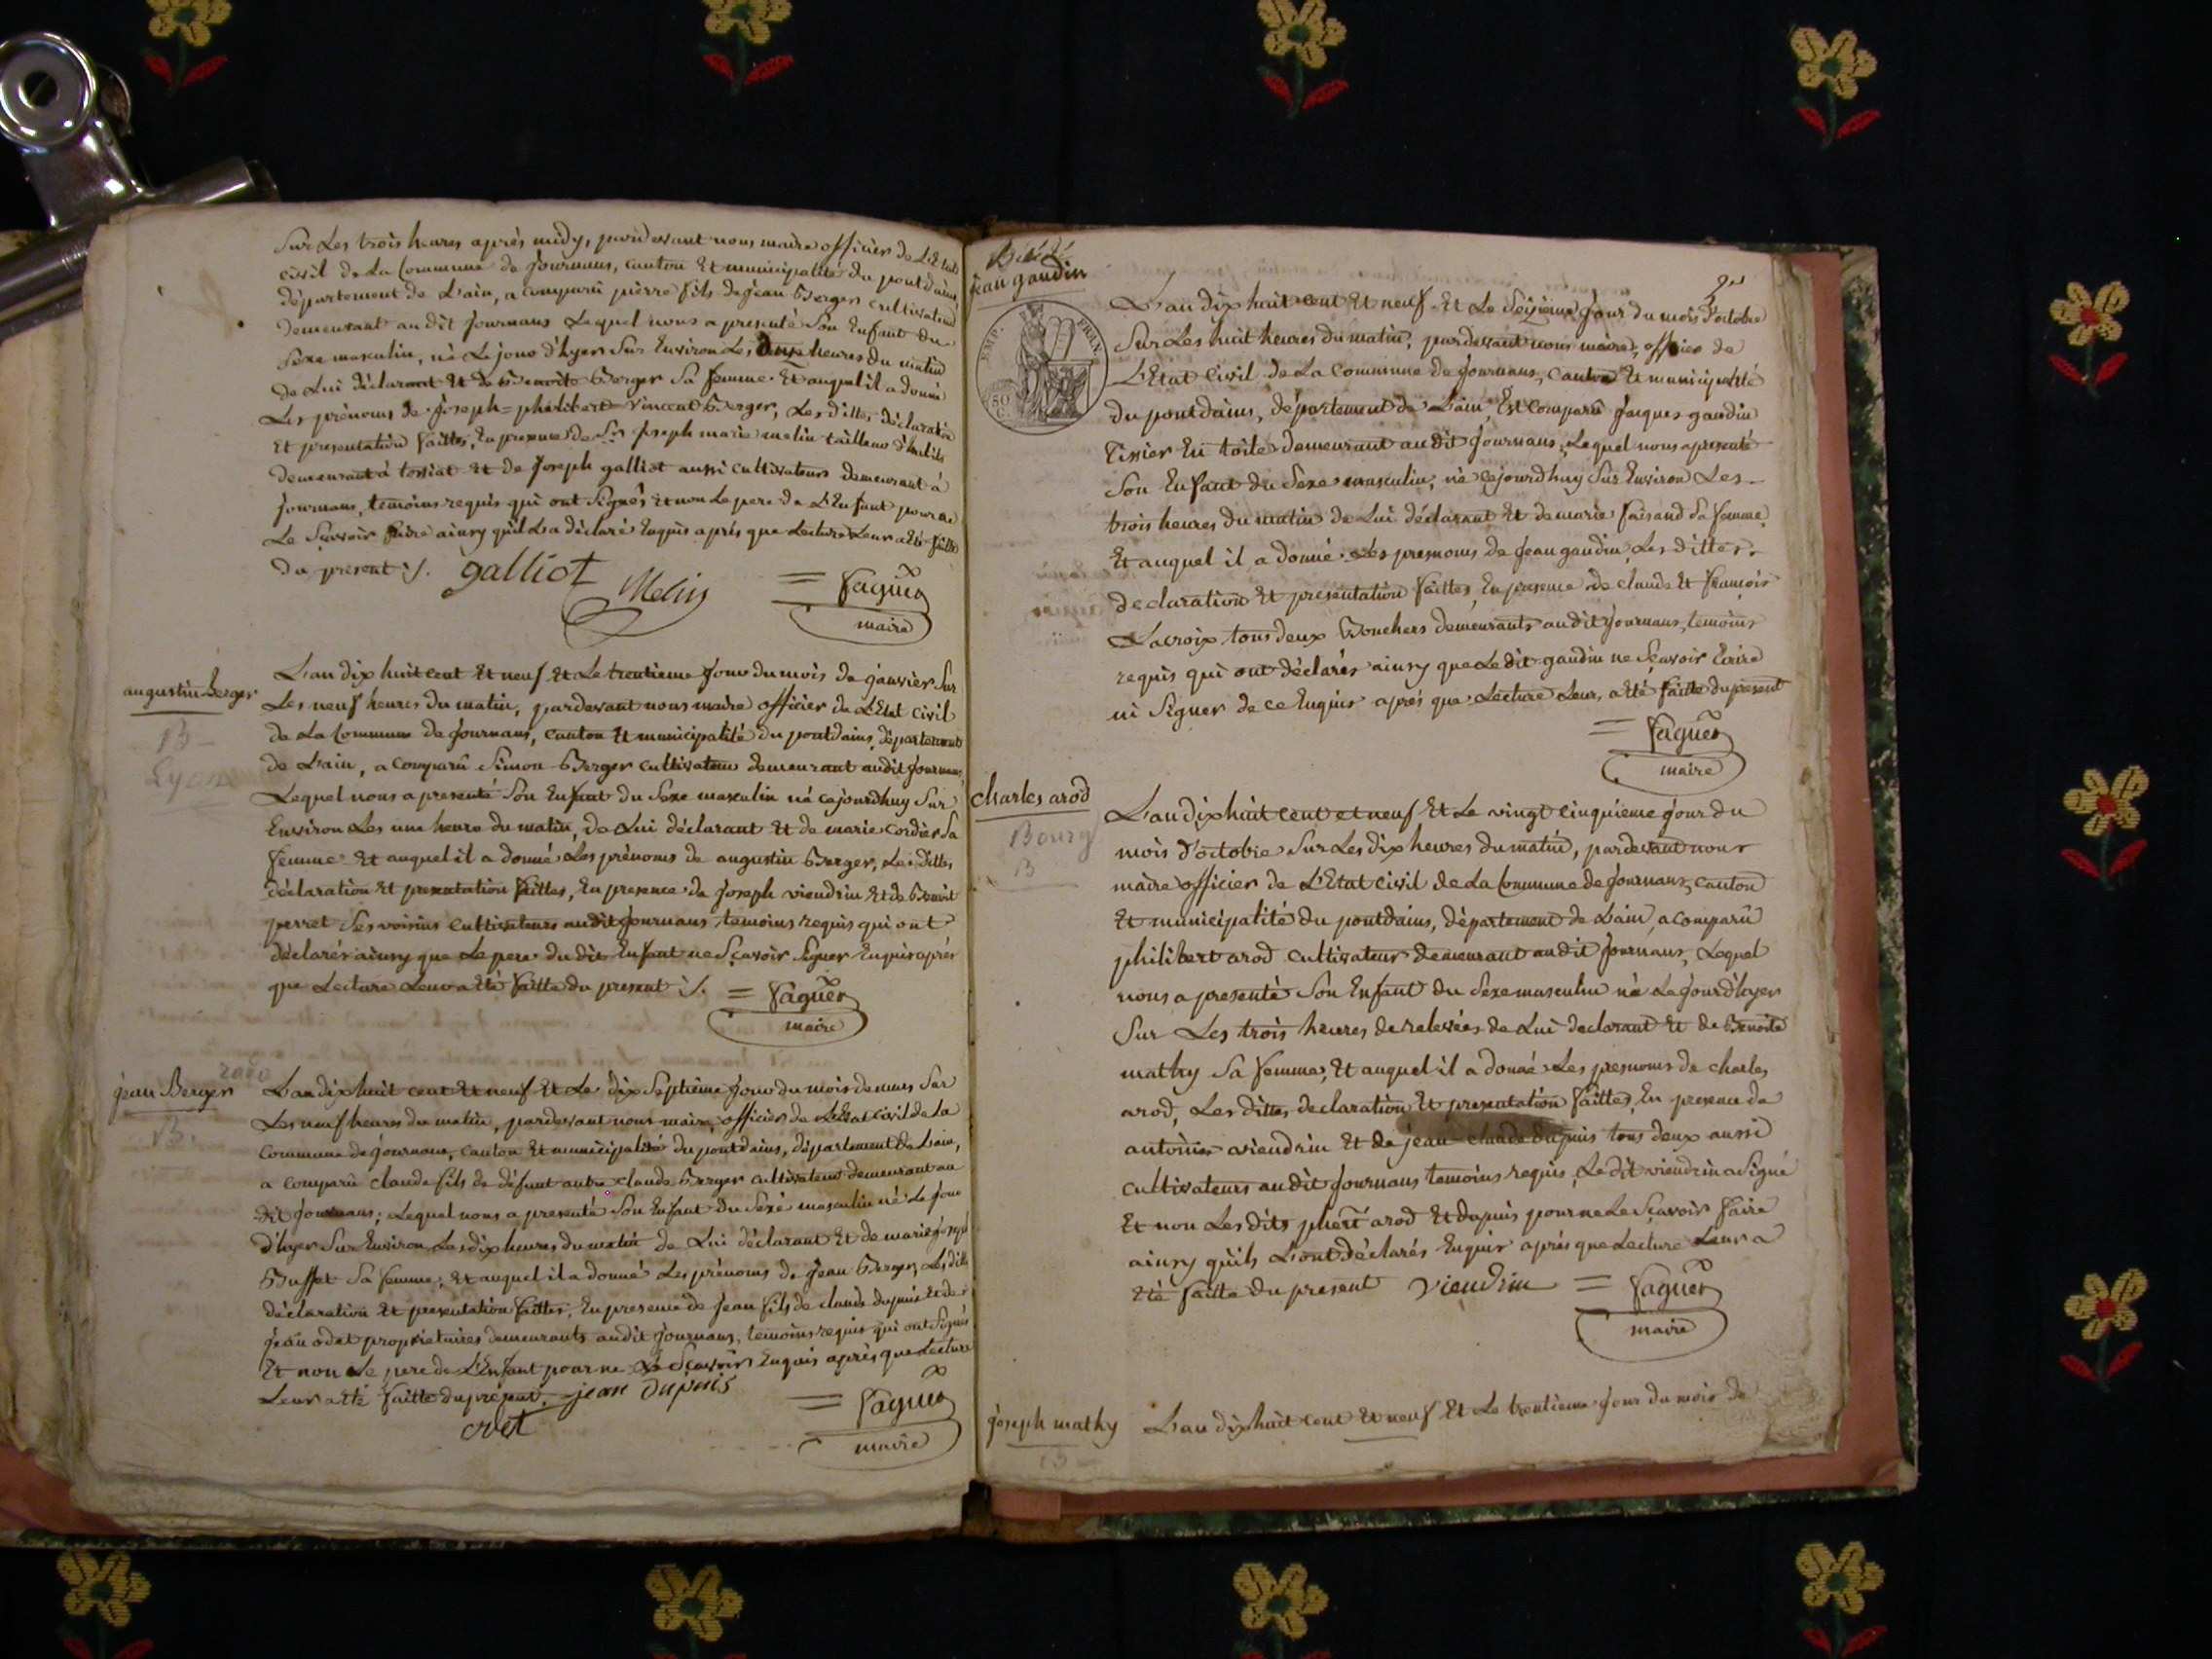 Sur Les trois heures après midy, pardevant nous maire officier de L'Etat
civil de La Commune de Journans, canton Et municipalité du pontdains,
département de L'ain, a comparû pierre fils de jean Berger cultivateur
demeurant au dit Journans Lequel nous a presenté Son Enfant du
Sexe masculin, né Le jour d'hyer Sur Environ Les onze heures du matin
de Lui déclarant Et de Benoite Berger Sa femme Et auquel il a donné
Les prénoms de Joseph=philibert=Vincent Berger, Les dittes déclaration
Et presentation faittes, En presence de Sr Joseph marie melin tailleur d'habits
demeurant à tossiat Et de Joseph galliot aussi cultivateur demeurant à
Journans, temoins requis qui ont Signés et non Le pere de L'Enfant pour ne
Le Sçavoir faire ainsy qu'il L'a déclaré Enquis après que Lecture Leur a Eté faitte
du present ./.
galliot
Melin
= Faguer
maire
augustin berger
B
Lyon
L'an dix huit cent Et neuf Et Le trentieme Jour du mois de janvier Sur
Les neuf heures du matin, pardevant nous maire officier de L'Etat civil
de La Commune de Journans, canton Et municipalité du pontdains, département
de L'ain, a comparû Simon Berger cultivateur demeurant audit Journans,
Lequel nous a presenté Son Enfant du Sexe masculin né cejourdhuy Sur
Environ Les une heure du matin, de Lui déclarant Et de marie cordier Sa
femme Et auquel il a donné Les prénoms de augustin Berger, Les dittes
déclaration Et presentation faittes, En presence de Joseph viendrin Et de Benoit
perret Ses voisins cultivateurs audit Journans temoins requis qui ont
déclarés ainsy que Le pere du dit Enfant ne Sçavoir Signer Enquis après
que Lecture Leur a Eté faitte du present ./. = Faguer
maire
jean Berger
B.
L'an dix huit cent Et neuf Et Le dix Septième Jour du mois de mars Sur
Les neuf heures du matin, pardevant nous maire officier de L'Etat civil de La
Commune de Journans, canton Et municipalité du pontdains, département de L'ain,
a comparû claude fils de défunt autre claude Berger cultivateur demeurant au
dit Journans; Lequel nous a presenté Son Enfant du Sexe masculin né Le Jour
d'hyer Sur Environ Les dix heures du matin de Lui déclarant Et de marie
Buffet Sa femme; Et auquel il a donné Les prénoms de Jean Berger, Les dittes
déclaration Et presentation faittes, En presence de Jean fils de claude dupuis Et de
Jean odet propriétaires demeurants audit Journans, temoins requis qui ont Signés
Et non Le pere de L'Enfant pour ne Le Sçavoir Enquis après que Lecture
Leur a Eté faitte du present. jean dupuis
= Faguer
odet
maire
jean gaudin
EMP. FRAN.
50 C.
L'an dix huit cent Et neuf Et Le Seizieme Jour du mois d'octobre
Sur Les huit heures du matin, pardevant nous maire, officier de
L'Etat Civil de La Commune de Journans, Canton Et municipalité
du pontdains, département de L'ain, Est Comparû Jacques gaudin
Tissier En toile demeurant au dit Journans, Lequel nous a presenté
Son Enfant du Sexe masculin, né cejourdhuy Sur Environ Les
trois heures du matin de Lui déclarant Et de marie faisand Sa femme
Et auquel il a donné Les prenoms de Jean gaudin Les dittes
declaration Et presentation faittes, En presence de claude Et françois
Lacroix tous deux Bouchers demeurants audit Journans, temoins
requis qui ont déclarés ainsy que Le dit gaudin ne Sçavoir Ecrire
ni Signer de ce Enquis après que Lecture Leur, a Eté faitte du present
= Faguer
maire
charles arod
Bourg
B
L'an dix huit cent et neuf Et Le vingt cinquieme Jour du
mois d'octobre Sur Les dix heures du matin, pardevant nous
maire officier de L'Etat Civil de La Commune de Journans, canton
Et municipalité du pontdains, département de L'ain, a comparû
philibert arod cultivateur demeurant au dit Journans, Lequel
nous a presenté Son Enfant du Sexe masculin né Le Jour d'hyer
Sur Les trois heures de relevées de Lui declarant Et de Benoite
mathy Sa femme, Et auquel il a donné Les prenoms de charles
arod, Les dittes declaration Et presentation faittes, En presence de
antoine viendrin Et de jean claude dupuis tous deux aussi
cultivateurs audit Journans temoins requis, Le dit viendrin a Signé
Et non Les dits phert arod Et dupuis pour ne Le Sçavoir faire
ainsy qu'ils L'ont déclarés Enquis après que Lecture Leur a
Eté faitte du present viendrin = Faguer
maire
joseph mathy
L'an dix huit cent Et neuf Et Le trentieme Jour du mois de